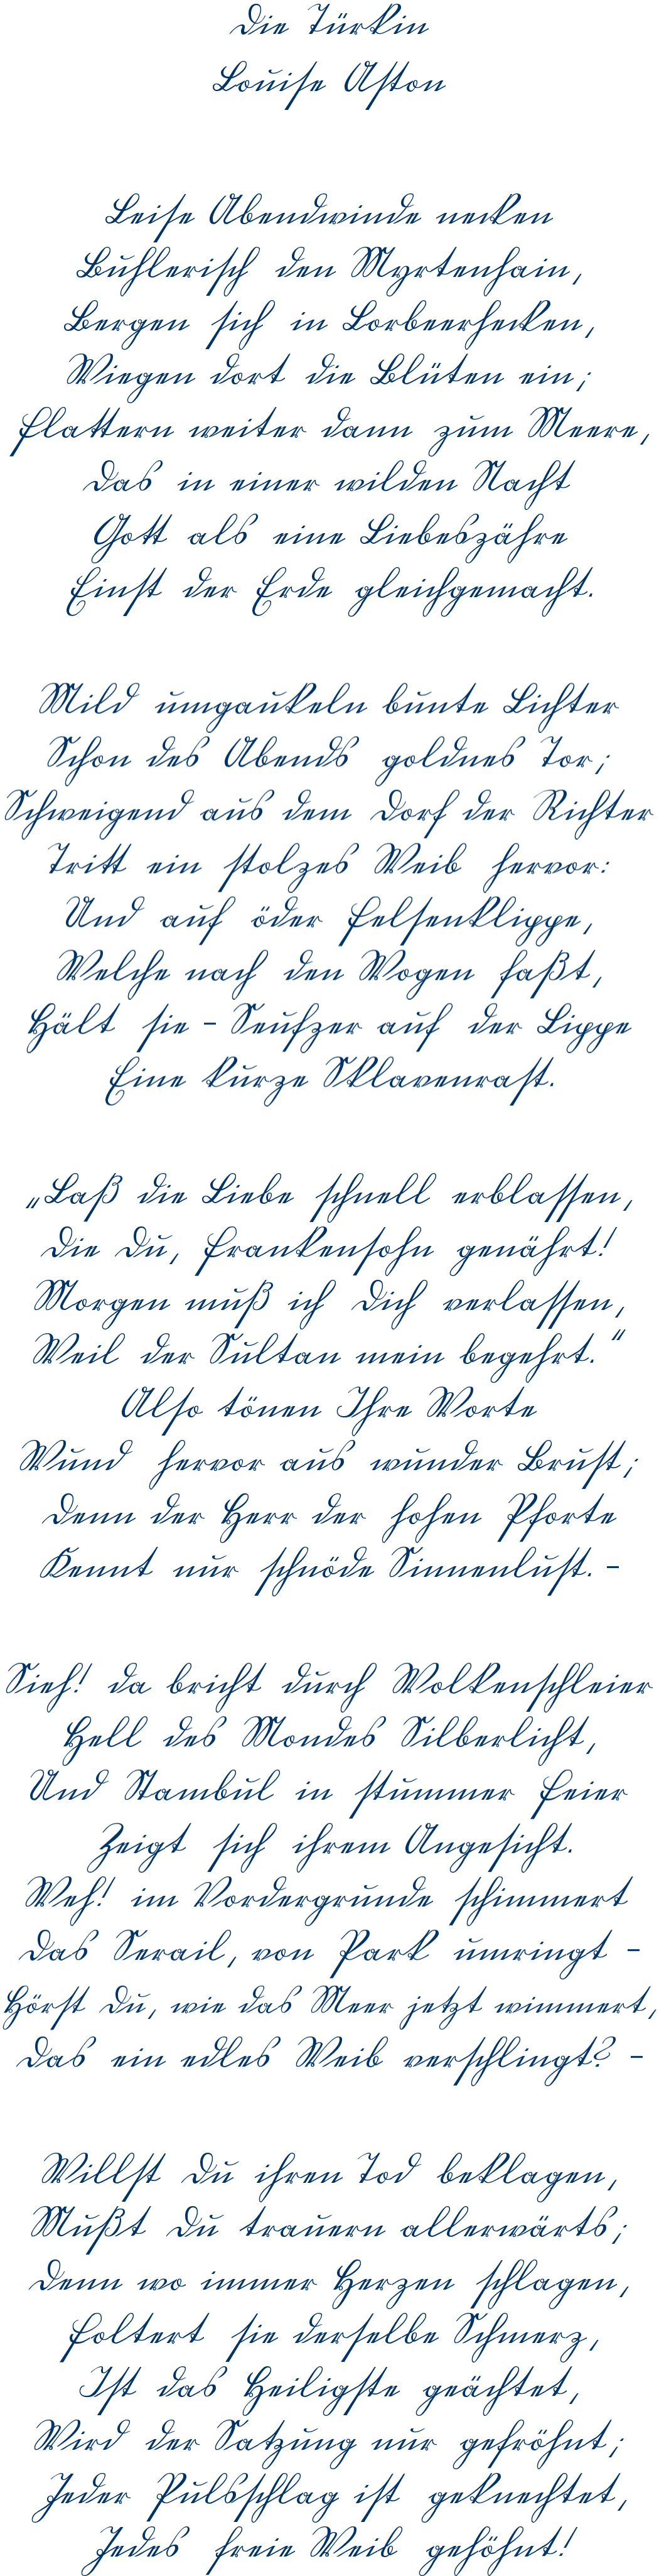 Die Türkin
Louise Aston
Leise Abendwinde necken
Buhlerisch den Myrtenhain,
Bergen sich in Lorbeerhecken,
Wiegen dort die Blüten ein;
Flattern weiter dann zum Meere,
Das in einer wilden Nacht
Gott als eine Liebeszähre
Einst der Erde gleichgemacht.
Mild umgaukeln bunte Lichter
Schon des Abends goldnes Tor;
Schweigend aus dem Dorf der Richter
Tritt ein stolzes Weib hervor:
Und auf öder Felsenklippe,
Welche nach den Wogen faßt,
Hält sie – Seufzer auf der Lippe
Eine kurze Sklavenrast.
„Laß die Liebe schnell erblassen,
Die Du, Frankensohn genährt!
Morgen muß ich Dich verlassen,
Weil der Sultan mein begehrt.“
Also tönen Ihre Worte
Wund hervor aus wunder Brust;
Denn der Herr der hohen Pforte
Kennt nur schnöde Sinnenlust. –
Sieh! da bricht durch Wolkenschleier
Hell des Mondes Silberlicht,
Und Stambul in stummer Feier
Zeigt sich ihrem Angesicht.
Weh! im Vordergrunde schimmert
Das Serail, von Park umringt –
Hörst Du, wie das Meer jetzt wimmert,
Das ein edles Weib verschlingt? –
Willst Du ihren Tod beklagen,
Mußt Du trauern allerwärts;
Denn wo immer Herzen schlagen,
Foltert sie derselbe Schmerz,
Ist das Heiligste geächtet,
Wird der Satzung nur gefröhnt;
Jeder Pulsschlag ist geknechtet,
Jedes freie Weib gehöhnt!